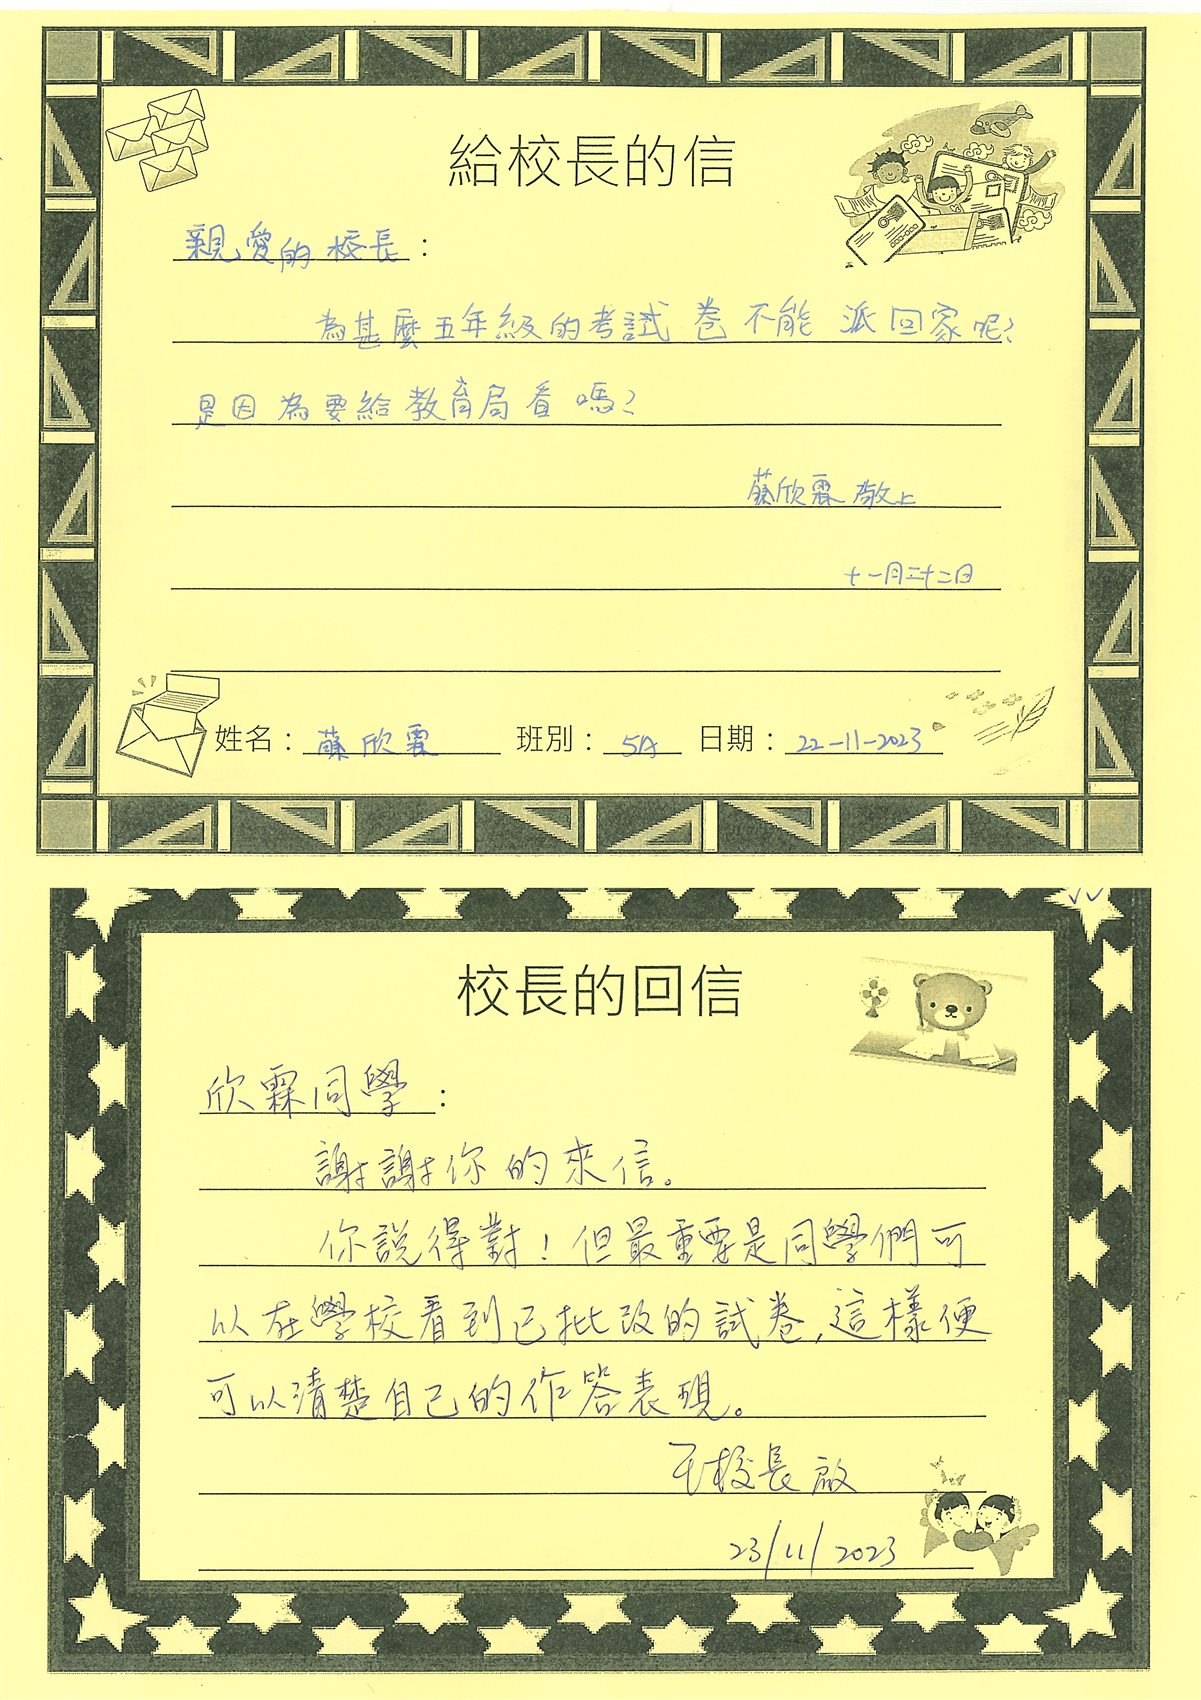 給校長的信
親愛的校長：
為甚麼五年級的考試卷不能派回家呢？
是因為要給教育局看嗎？
欣霖敬上
十一月二十二日
姓名：欣霖 班別：5A 日期：22-11-2023
校長的回信
欣霖同學：
謝謝你的來信。
你說得對！但最重要是同學們可
以在學校看到已批改的試卷，這樣便
可以清楚自己的作答表現。
校長啟
23/11/2023